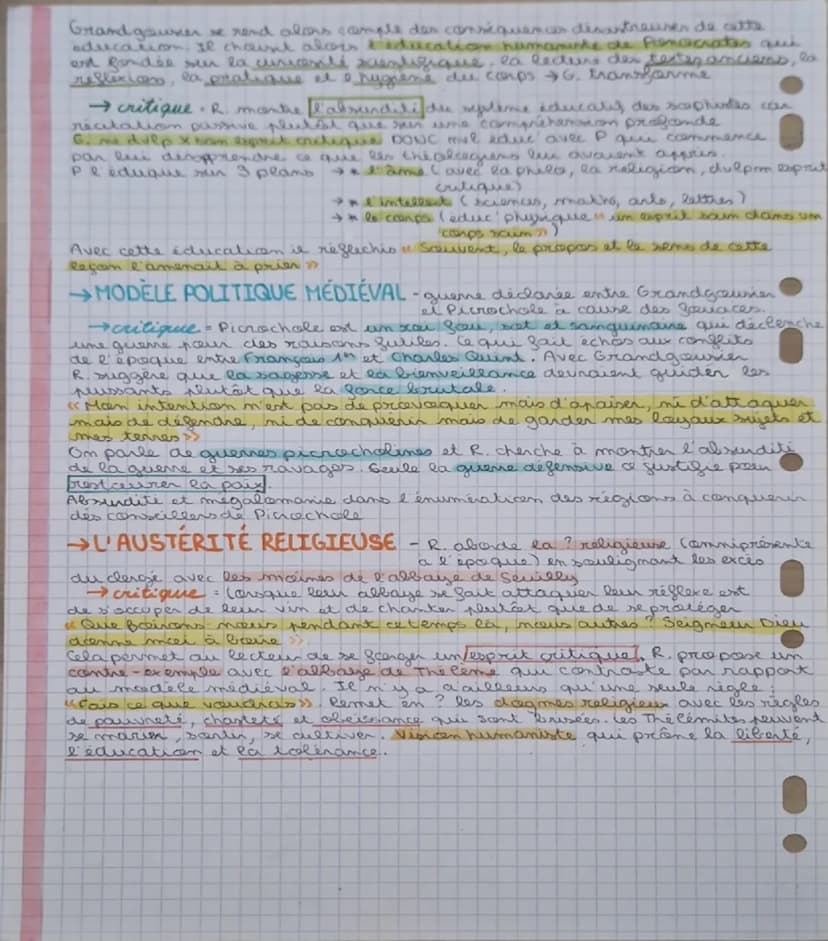 Grandgousier se rend alors compte des conséquences désastreuses de cette
éducation. Il choisit alors l'éducation humaniste de Ponocrates qui
est fondée sur la curiosité scientifique, la lecture des textes anciens, la
réflexion, la pratique et l'hygiène du corps → G. transformé
→ critique : R. montre l'absurdité du système éducatif des sophistes car
récitation passive plutôt que sur une compréhension profonde
G. ne dvlp pas son esprit critique DONC nvl éduc' avec P qui commence
par lui désapprendre ce que les théologiens lui avaient appris.
P l'éduque sur 3 plans → * l'âme (avec la philo, la religion, dvlpm esprit
critique)
→ * l'intellect (sciences, maths, arts, lettres)
→ * le corps (educ' physique « un esprit sain dans un
corps sain »)
Avec cette éducation il réfléchis « Souvent, le propos et le sens de cette
leçon l'amenait à prier »
→ MODÈLE POLITIQUE MÉDIÉVAL - guerre déclarée entre Grandgousier
et Picrochole à cause des fouaces.
→ critique = Picrochole est un roi fou, sot et sanguinaire qui déclenche
une guerre pour des raisons futiles. Ce qui fait echos aux conflits
de l'époque entre François 1er et Charles Quint. Avec Grandgousier
R. suggère que la sagesse et la bienveillance devraient guider les
puissants plutôt que la force brutale.
« Mon intention n'est pas de provoquer mais d'apaiser, ni d'attaquer
mais de défendre, ni de conquérir mais de garder mes loyaux sujets et
mes terres »
On parle de guerres picrocholines et R. cherche à montrer l'absurdité
de la guerre et ses ravages. Seule la guerre défensive se justifie pour
restaurer la paix.
Absurdité et mégalomanie dans l'énumération des régions à conquérir
des conseillers de Picrochole
→ L'AUSTÉRITÉ RELIGIEUSE - R. aborde la ? religieuse (omniprésente
à l'époque) en soulignant les excès
du clergé avec les moines de l'abbaye de Seuilly
→ critique = lorsque leur abbaye se fait attaquer leur réflexe est
de s'occuper de leur vin et de chanter plutôt que de se protéger
« Que boirons-nous pendant ce temps là, nous autres ? Seigneur Dieu
donne moi à boire »
Cela permet au lecteur de se forger un esprit critique. R. propose un
contre-exemple avec l'abbaye de Thélème qui contraste par rapport
au modèle médiéval. Il n'y a d'ailleurs qu'une seule règle :
« Fais ce que voudras ». Remet en ? les dogmes religieux avec les règles
de pauvreté, chasteté et obéissance qui sont brisées. Les Thélémites peuvent
se marier, sortir, se cultiver. Vision humaniste qui prône la liberté,
l'éducation et la tolérance.